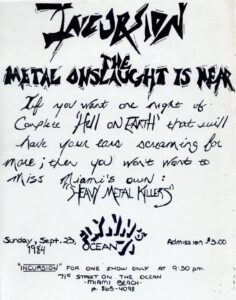 INCURSION
THE
METAL ONSLAUGHT IS NEAR
If you want one night of
Complete "Hell on EARTH" that will
have your ears screaming for
more; then you won't want to
Miss Miami's own:
"HEAVY METAL KILLERS"
FLYNN'S
OCEAN 71
Sunday, Sept. 23,
1984
Admission $3.00
"INCURSION" FOR ONE SHOW ONLY AT 9:30 pm
71ST STREET ON THE OCEAN
-MIAMI BEACH-
p. 865-4098